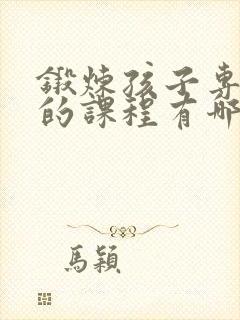 鍛煉孩子專
的課程有哪
馬穎